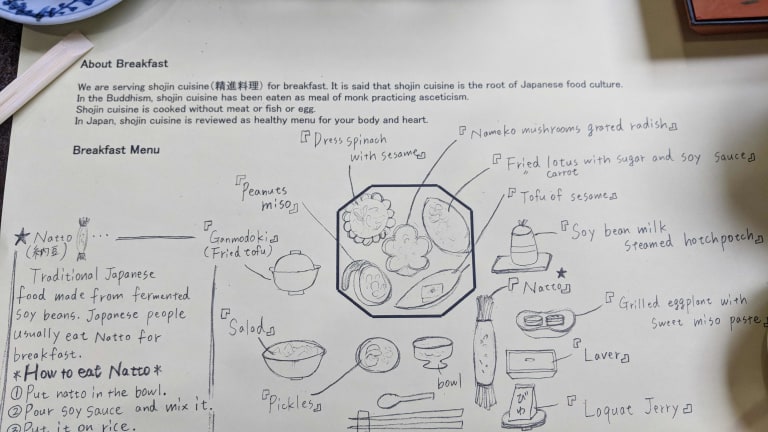 About Breakfast
We are serving shojin cuisine(精進料理) for breakfast. It is said that shojin cuisine is the root of Japanese food culture.
In the Buddhism, shojin cuisine has been eaten as meal of monk practicing asceticism.
Shojin cuisine is cooked without meat or fish or egg.
In Japan, shojin cuisine is reviewed as healthy menu for your body and heart.
Breakfast Menu
『Dress spinach
with sesame』
『Nameko mushrooms grated radish』
『Fried lotus with sugar and soy sauce』
carrot
『Peanuts
miso』
『Tofu of sesame』
★ Natto ...
(納豆)
『Ganmodoki』
(Fried tofu)
『Soy bean milk
steamed hotchpotch』
Traditional Japanese
food made from fermented
soy beans. Japanese people
usually eat Natto for
breakfast.
『Natto』★
『Grilled eggplant with
sweet miso paste』
『Salad』
『Laver』
*How to eat Natto*
① Put natto in the bowl.
② Pour soy sauce and mix it.
③ Put it on rice.
『Pickles』
bowl
びわ
『Loquat Jerry』